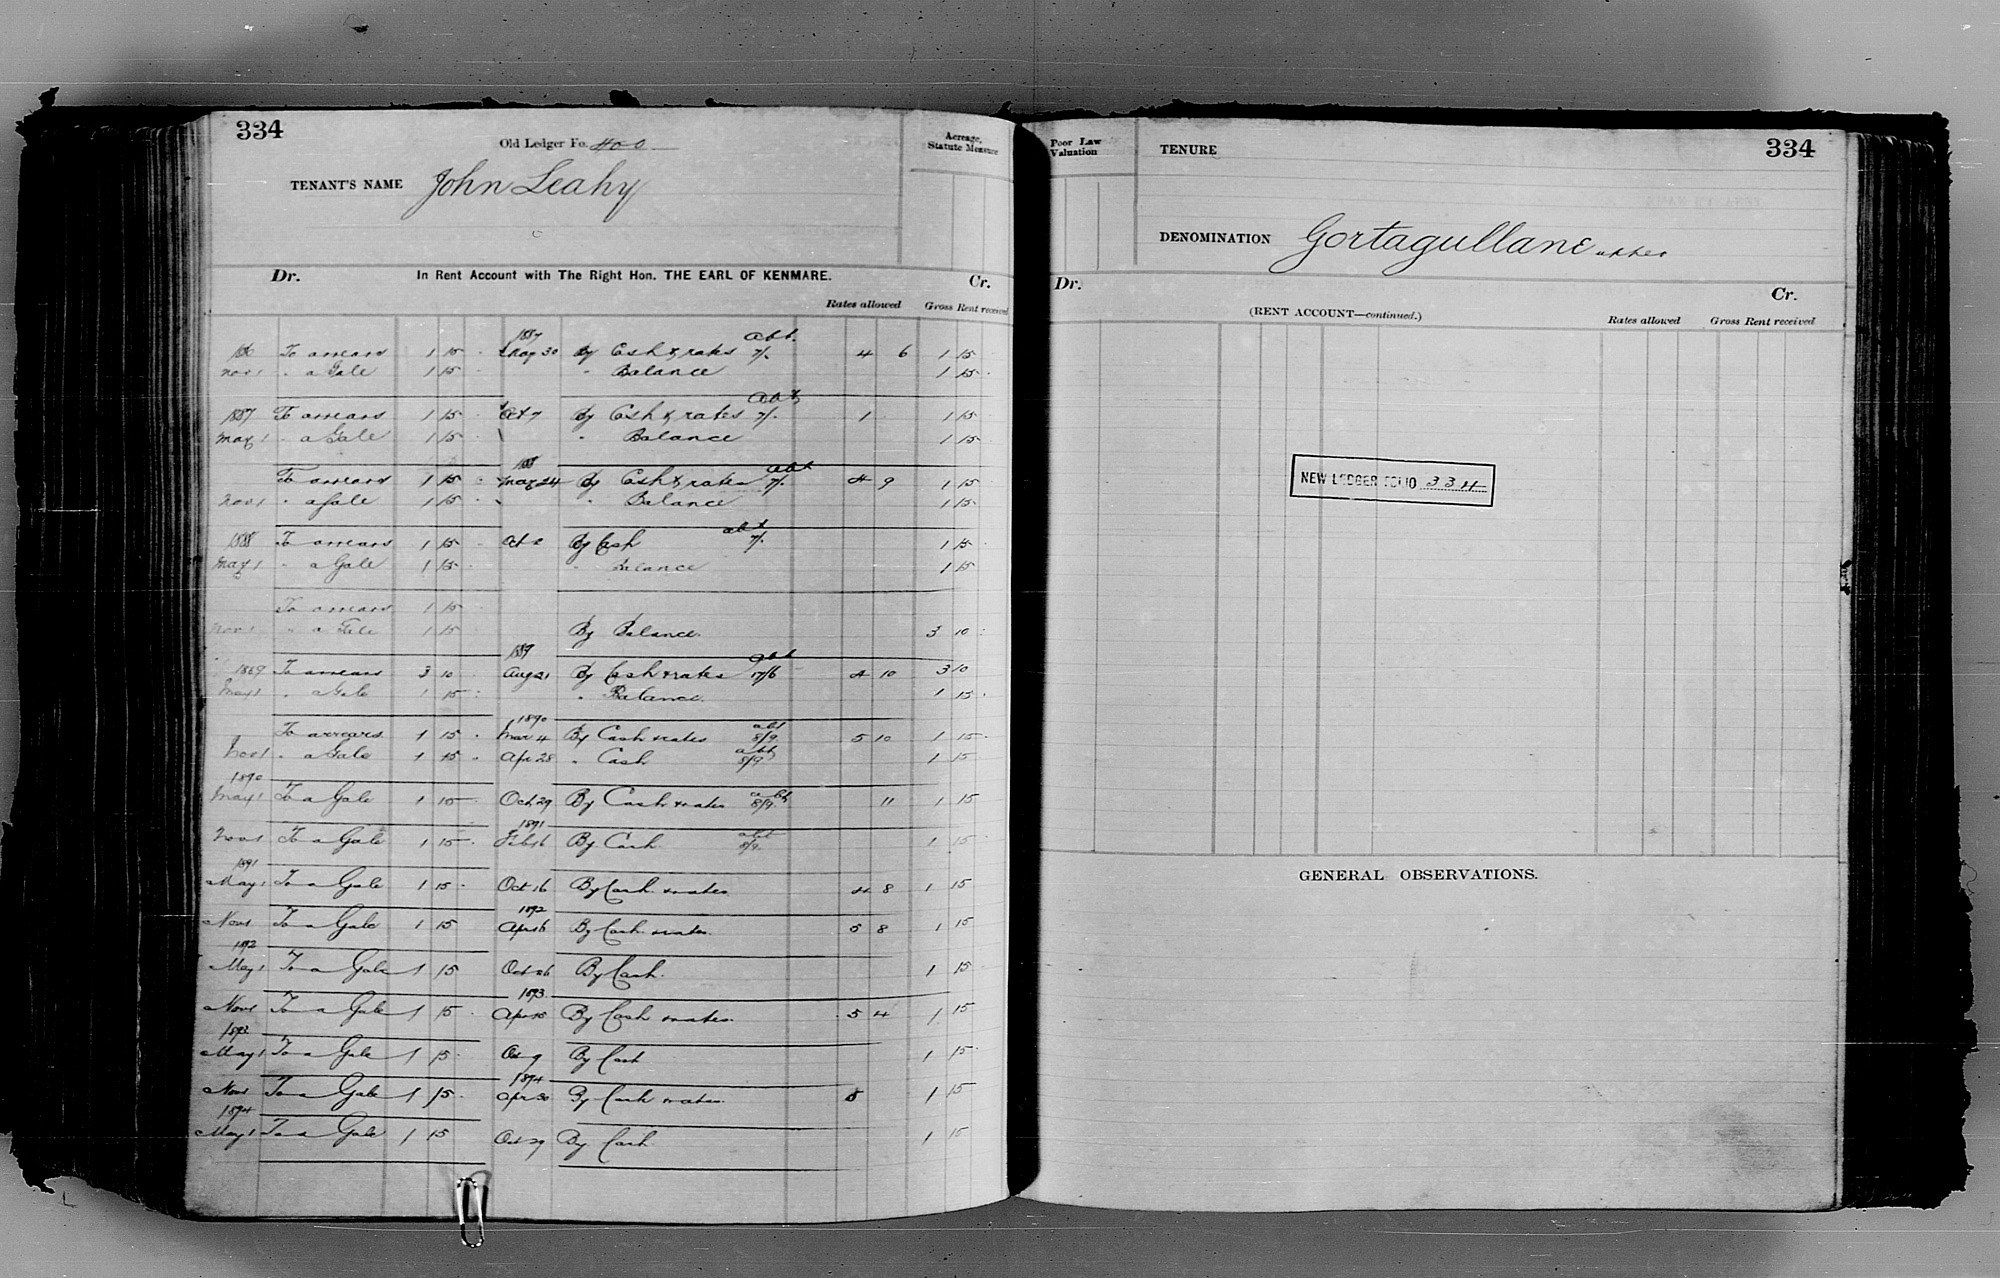 334
Old Ledger Fo. 400
TENANT'S NAME John Leahy
Acreage, Statute Measure
Dr. In Rent Account with The Right Hon. THE EARL OF KENMARE. Cr.
Rates allowed Gross Rent received
1887 abt.
To arrears 1 15 May 30 By Cash & rates 7/. 4 6 1 15
Nov 1 " a Gale 1 15 " Balance 1 15
abt
1887 To arrears 1 15 Oct 7 By Cash & rates 7/. 1 1 15
May 1 " a Gale 1 15 " Balance 1 15
1888 abt
To arrears 1 15 May 24 By Cash & rates 7/. 4 9 1 15
Nov 1 " a Gale 1 15 " Balance 1 15
abt
1888 To arrears 1 15 Oct By Cash 7/. 1 15
May 1 " a Gale 1 15 " Balance 1 15
To arrears 1 15
Nov 1 " a Gale 1 15 By Balance 3 10
1889 abt
1889 To arrears 3 10 Aug 21 By Cash & rates 17/6 4 10 3 10
May 1 " a Gale 1 15 " Balance 1 15
1890 abt
To arrears 1 15 Mar 4 By Cash & rates 8/9 5 10 1 15
Nov 1 " a Gale 1 15 Apr 28 " Cash abt 8/9 1 15
1890
May 1 To a Gale 1 15 Oct 29 By Cash & rates abt 8/9 11 1 15
1891
Nov 1 To a Gale 1 15 Feb 16 By Cash abt 8/9 1 15
1891
May 1 To a Gale 1 15 Oct 16 By Cash & rates 4 8 1 15
1892
Nov 1 To a Gale 1 15 Apr 16 By Cash & rates 5 8 1 15
1892
May 1 To a Gale 1 15 Oct 26 By Cash 1 15
1893
Nov 1 To a Gale 1 15 Apr 15 By Cash & rates 5 4 1 15
1893
May 1 To a Gale 1 15 Oct 9 By Cash 1 15
1894
Nov 1 To a Gale 1 15 Apr 30 By Cash & rates 5 1 15
1894
May 1 To a Gale 1 15 Oct 29 By Cash 1 15
Poor Law Valuation
TENURE
334
DENOMINATION Gortagullane upper
Dr. Cr.
(RENT ACCOUNT—continued.) Rates allowed Gross Rent received
NEW LEDGER FOLIO 334
GENERAL OBSERVATIONS.